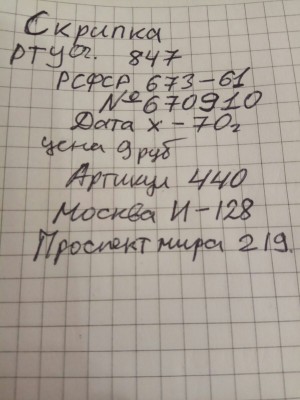 Скрипка
РТУ 847
РСФСР 673-61
№670910
Дата х-70г
цена 9 руб
Артикул 440
Москва И-128
Проспект мира 219.